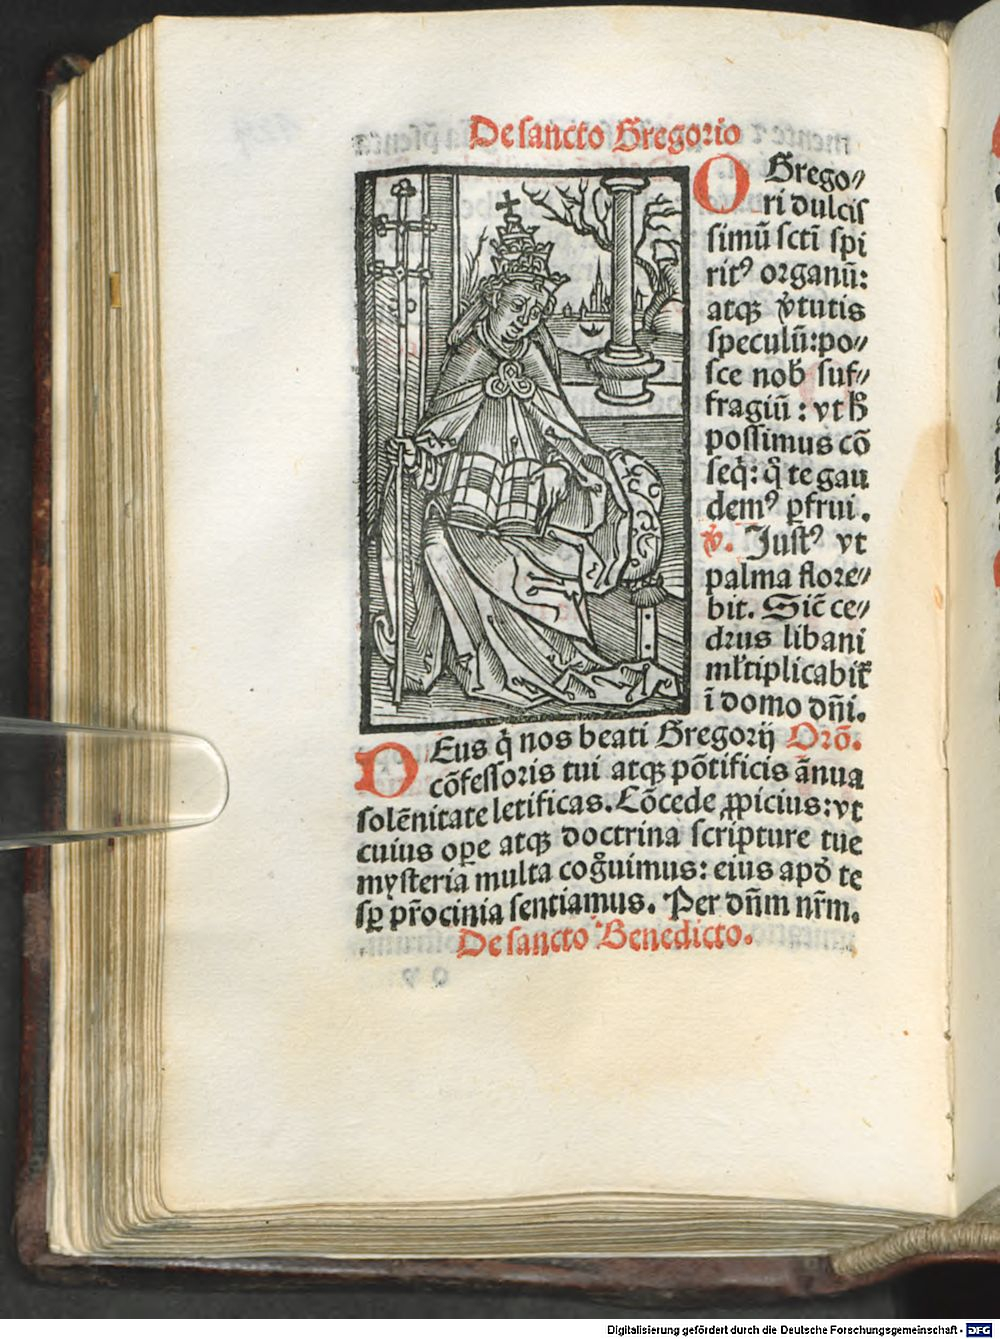 De sancto Gregorio
O Grego⸗
ri dulcis
simū sctī spi
ritꝰ organū:
atqꝫ v̓tutis
speculū: po⸗
sce nob̄ suf⸗
fragiū: vt h̄
possimus cō
seq̄: q̄ te gau
demꝰ ꝑfrui.
℣. Justꝰ vt
palma flore⸗
bit. Sic̄ ce⸗
drus libani
ml̓tiplicabit᷑
ī domo dn̄i.
DEus q̄ nos beati Gregorij Orō.
cōfessoris tui atqꝫ pōtificis ānua
solēnitate letificas. Cōcede ꝓpicius: vt
cuius oꝑe atqꝫ doctrina scripture tue
mysteria multa cog̓uimus: eius apd̓ te
sꝑ pr̄ocinia sentiamus. Per dn̄m nr̄m.
De sancto Benedicto.
Digitalisierung gefördert durch die Deutsche Forschungsgemeinschaft - DFG